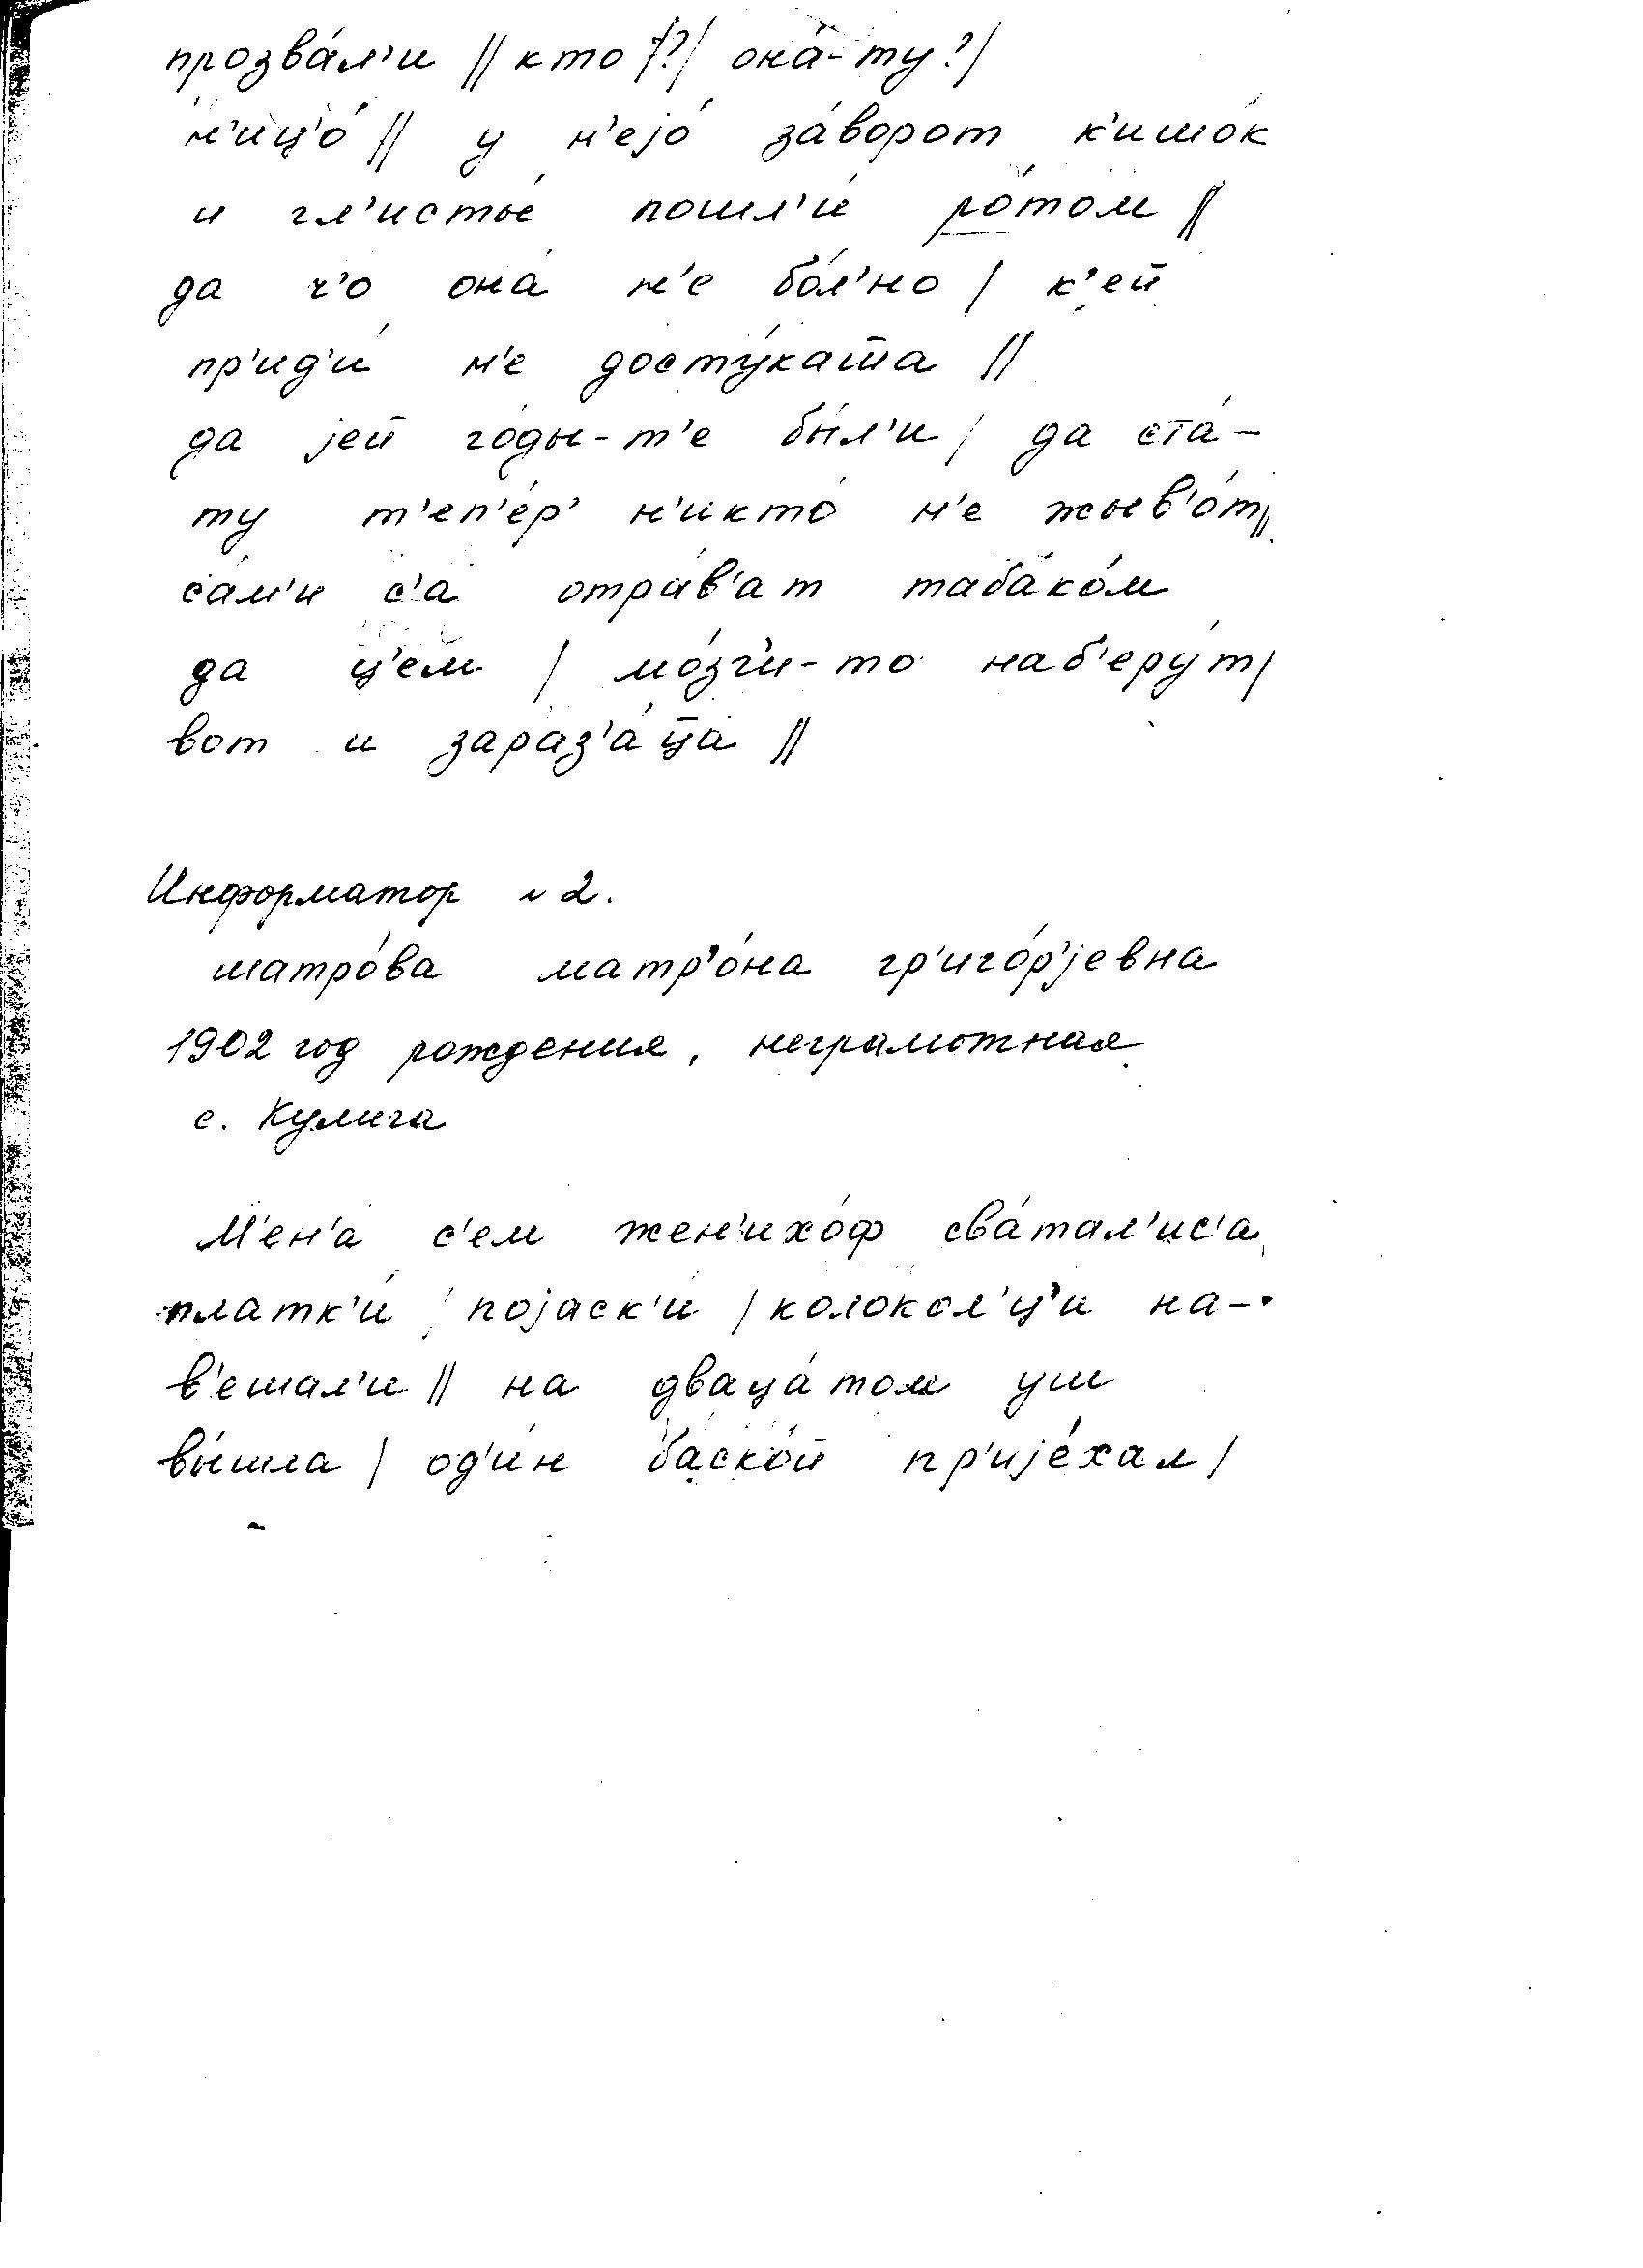 прозва́л'и || кто /?/ она́-ту?/
н'иц'о́ || у н'ејо́ за́ворот к'ишо́к
и гл'исты́е пошл'и́ ро́то́м ||
да ч'о она́ н'е бо́л'но / к'ей
пр'ид'и́ н'е досту́кат̅а ||
да јей го́ды-т'е бы́л'и / да ста́-
ту т'еп'е́р' н'икто́ н'е жыв'о́т ||
са́м'и с'а отра́в'ат таба́ко́м
да ц'ем / мо́зг'и-то наб'еру́т /
вот и зараз'а́ц̅а ||
Информатор № 2.
шатро́ва матр'о́на гр'иго́р'јевна
1902 год рождения, неграмотная
с. Кулига
М'ен'а́ с'ем жен'ихо́ф сва́тал'ис'а
платк'и́ / појаск'и́ / колокол'ц'и на-
в'ешал'и || на дваца́том уш
вы́шла / од'и́н баско́й пр'ије́хал /